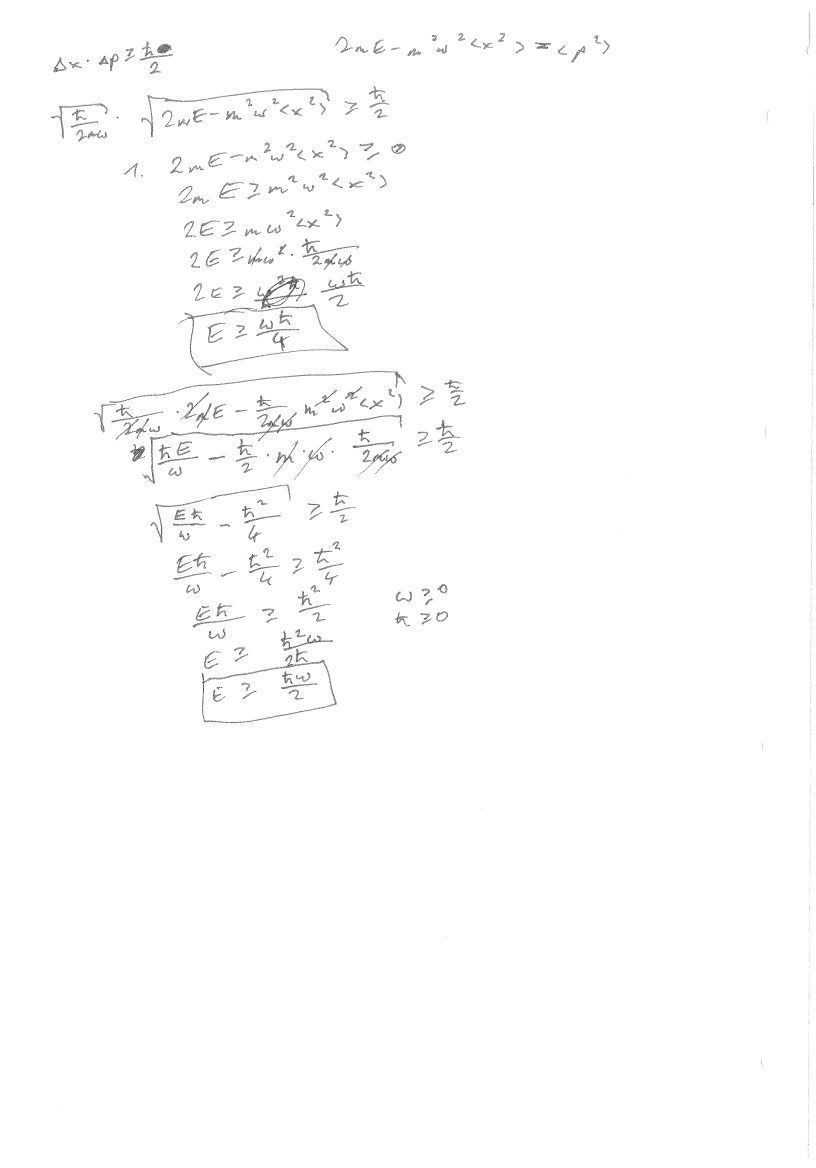 Δx · Δp ≥ ħ/2
2mE - m²ω²<x²> = <p²>
√(ħ/2mω) · √(2mE - m²ω²<x²>) ≥ ħ/2
1. 2mE - m²ω²<x²> ≥ 0
2mE ≥ m²ω²<x²>
2E ≥ mω²<x²>
2E ≥ mω² · ħ/2mω
2E ≥ ωħ/2
E ≥ ωħ/4
√(ħ/2mω · 2mE - ħ/2mω m²ω²<x²>) ≥ ħ/2
√(ħE/ω - ħ/2 · m · ω · ħ/2mω) ≥ ħ/2
√(Eħ/ω - ħ²/4) ≥ ħ/2
Eħ/ω - ħ²/4 ≥ ħ²/4
ω ≥ 0
Eħ/ω ≥ ħ²/2
ħ ≥ 0
E ≥ ħ²ω/2ħ
E ≥ ħω/2